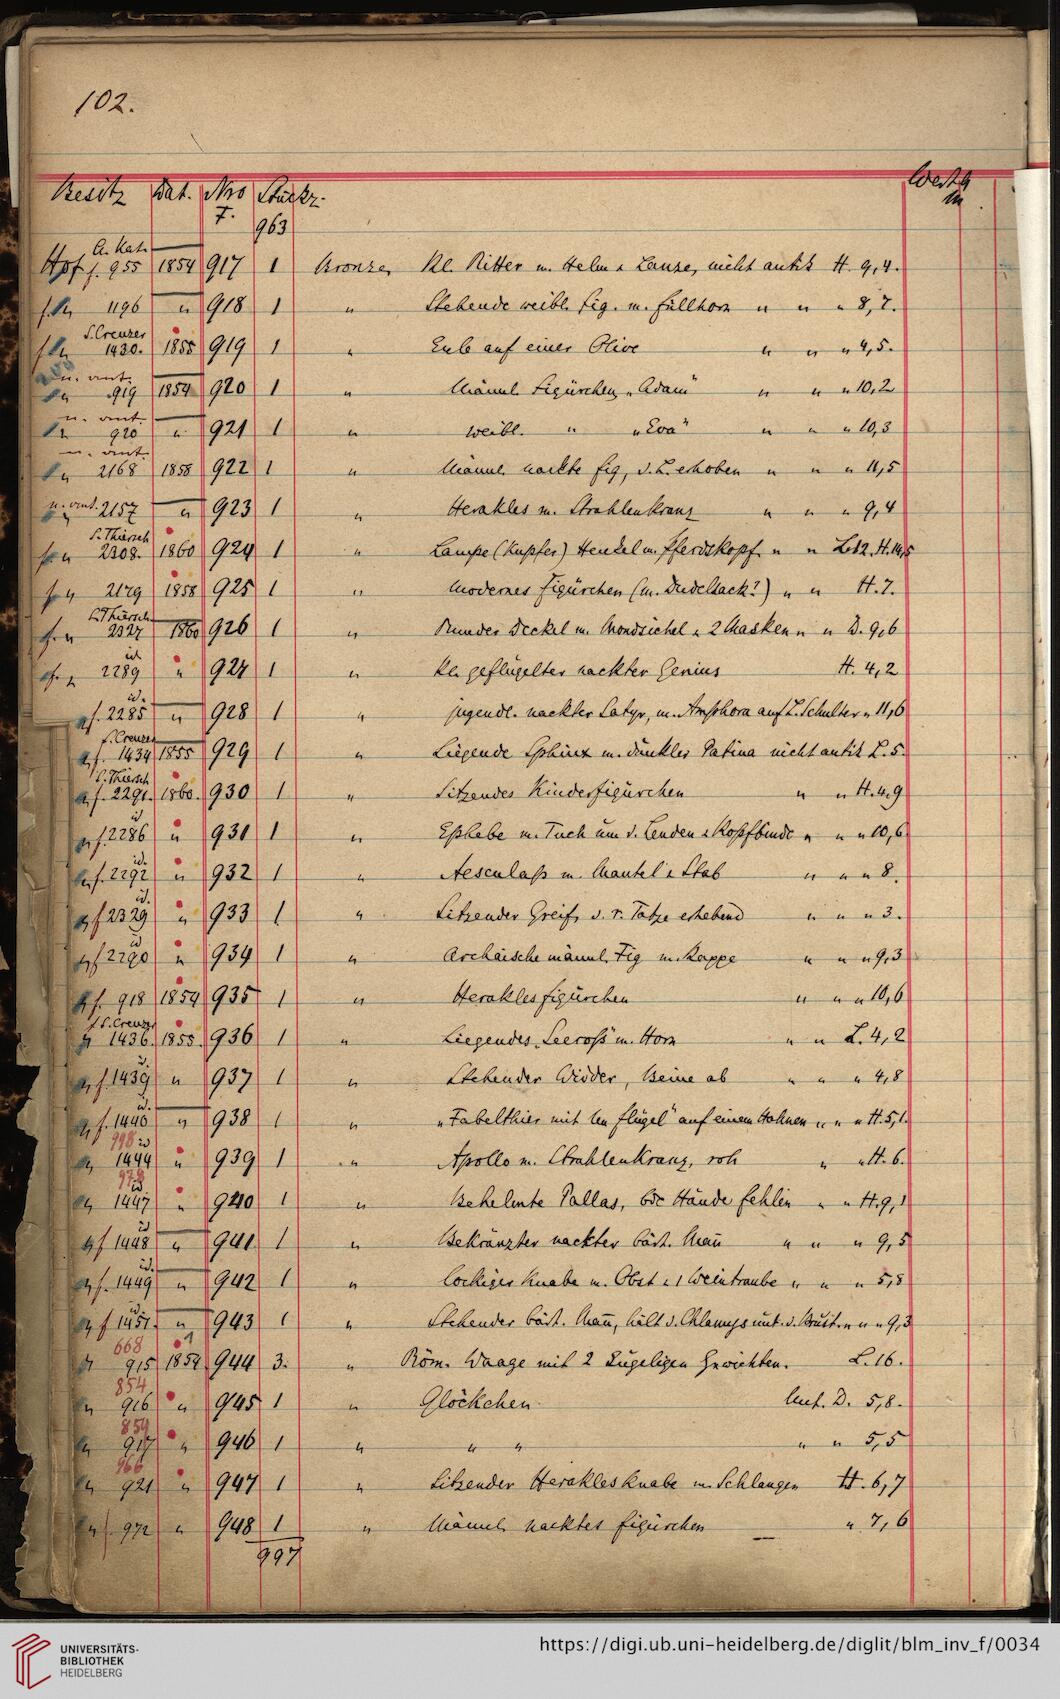 102.
Besitz Dat. Nro F. Stückz. Werth M
963
Hof A. Kat. f. 955 1854 917 1 Bronze, Kl. Ritter m. Helm u. Lanze, nicht antik H. 9,4.
f. " 1196 " 918 1 " Stehende weibl. Fig. m. Füllhorn " " " 8,7.
S. Creuzer
f " 1430. 1855 919 1 " Eule auf einer Olive " " " 4,5.
n. ant.
" 919 1854 920 1 " Männl. Figürchen, „Adam" " " " 10,2
n. ant.
" 920 " 921 1 " weibl. " „Eva" " " " 10,3
n. ant.
" 2168 1858 922 1 " Männl. nackte Fig., d. L. erhoben " " " 11,5
n. ant.
" 2157 " 923 1 " Herakles m. Strahlenkranz " " " 9,4
S. Thiersch
f " 2308. 1860 924 1 " Lampe (Kupfer) Henkel m. Pferdekopf " " L. 12. H. 14,5
f " 2179 1858 925 1 " modernes Figürchen (m. Dudelsack?) " " H. 7.
S. Thiersch
f. " 2327 1860 926 1 " Runder Deckel m. Mondsichel u. 2 Masken " " D. 9,6
id.
f. " 2289 " 927 1 " Kl. geflügelter nackter Genius H. 4,2
id.
" f. 2285 " 928 1 " jugendl. nackter Satyr, m. Amphora auf L. Schulter " 11,6
S. Creuzer
" f. 1434 1855 929 1 " Liegende Sphinx m. dunkler Patina nicht antik L. 5.
S. Thiersch
" f. 2291. 1860. 930 1 " Sitzendes Kinderfigürchen " " H. 4,9
id
" f. 2286 " 931 1 " Ephebe m. Tuch um d. Lenden u. Kopfbinde " " " 10,6
id.
" f. 2292 " 932 1 " Aesculap m. Mantel u. Stab " " " 8.
id.
" f 2329 " 933 1 " Sitzender Greif, d. r. Tatze erhebend " " " 3.
id
" f 2290 " 934 1 " Archaische männl. Fig m. Kappe " " " 9,3
" f. 918 1854 935 1 " Heraklesfigürchen " " " 10,6
f S. Creuzer
" 1436. 1855. 936 1 " Liegendes „Seeroß" m. Horn " " L. 4,2
id.
" f. 1439 " 937 1 " Stehender Widder, Beine ab " " " 4,8
id.
" f. 1440 " 938 1 " „Fabelthier mit Flügel" auf einem Hahnen " " " H. 5,1.
998 id
" 1444 " 939 1 " Apollo m. Strahlenkranz, roh " " H. 6.
978 id
" 1447 " 940 1 " Behelmte Pallas, bde Hände fehlen " " H. 9,1
id
" f 1448 " 941 1 " Bekränzter nackter bärt. Mann " " " 9,5
id.
" f. 1449 " 942 1 " lockiger Knabe m. Obst u. 1 Weintraube " " " 5,8
id.
" f 1451. " 943 1 " Stehender bärt. Mann, hält d. Chlamys unt. d. Brust. " " " 9,3
668
" 915 1854 944 3. " Röm. Waage mit 2 kugeligen Gewichten. L. 16.
854
" 916 " 945 1 " Glöckchen Unt. D. 5,8.
859
" 917 " 946 1 " " " " " 5,5
966
" 921 " 947 1 " Sitzender Heraklesknabe m. Schlangen H. 6,7
" f. 972 " 948 1 " Männl. nacktes Figürchen — " 7,6
997
UNIVERSITÄTS-
BIBLIOTHEK
HEIDELBERG
https://digi.ub.uni-heidelberg.de/diglit/blm_inv_f/0034